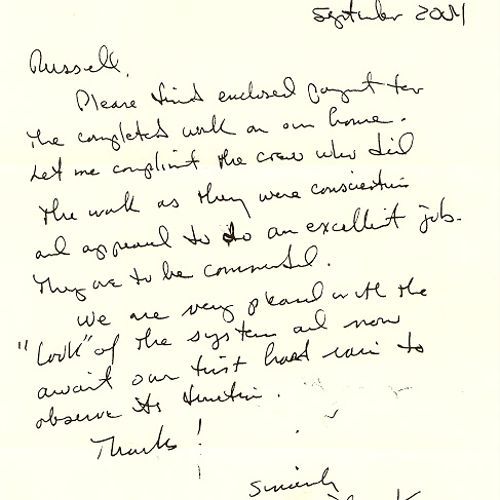 September 2004
Russell,
Please find enclosed payment for
the completed work on our home.
Let me compliment the crew who did
the work as they were conscientious
and appeared to do an excellent job.
They are to be commended.
We are very pleased with the
"look" of the system and now
await our first hard rain to
observe its function.
Thanks!
Sincerely